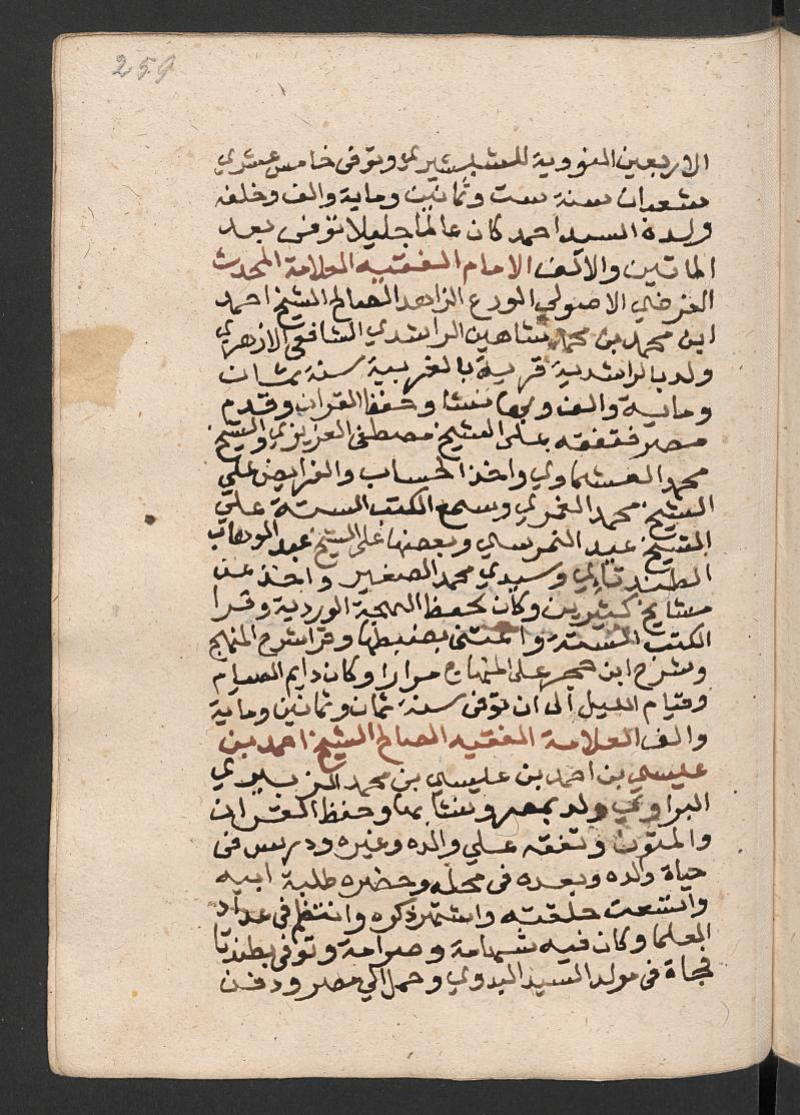 259
الاربعين النووية للشبشيري وتوفى خامس عشري
شعبان سنة ست وثمانين وماية والف وخلفه
ولده السيد احمد كان عالما جليلا توفى بعد
الماتين والالف الامام الفقيه العلامة المحدث
الفرضي الاصولي الورع الزاهد الصالح الشيخ احمد
ابن محمد بن محمد شاهين الراشدي الشافعي الازهري
ولد بالراشدية قرية بالغربية سنة ثمان
وماية والف وبها نشا وحفظ القران وقدم
مصر فتفقه على الشيخ مصطفى العزيزي والشيخ
محمد العشماوي واخذ الحساب والفرايض على
الشيخ محمد الغمري وسمع الكتب الستة على
الشيخ عيد النمرسي وبعضها على الشيخ عبد الوهاب
الطندتاءي وسيدي محمد الصغير واخذ عن
مشايخ كثيرين وكان يحفظ البهجة الوردية وقرا
الكتب الستة واعتنى بضبطها وقرا شرح المنهج
وشرح ابن حجر على المنهاج مرارا وكان دايم الصيام
وقيام الليل الى ان توفى سنة ثمان وثمانين وماية
والف العلامة الفقيه الصالح الشيخ احمد بن
عيسي بن احمد بن عيسي بن محمد الزبيري
البراوي ولد بمصر ونشا بها وحفظ القران
والمتون وتفقه علي والده وغيره ودرس فى
حياة والده وبعده فى محله وحضره طلبة ابيه
واتسعت حلقته واشتهر ذكره وانتظم فى عداد
العلما وكان فيه شهامة وصرامة وتوفى بطندتا
فجاة فى مولد السيد البدوي وحمل الي مصر ودفن